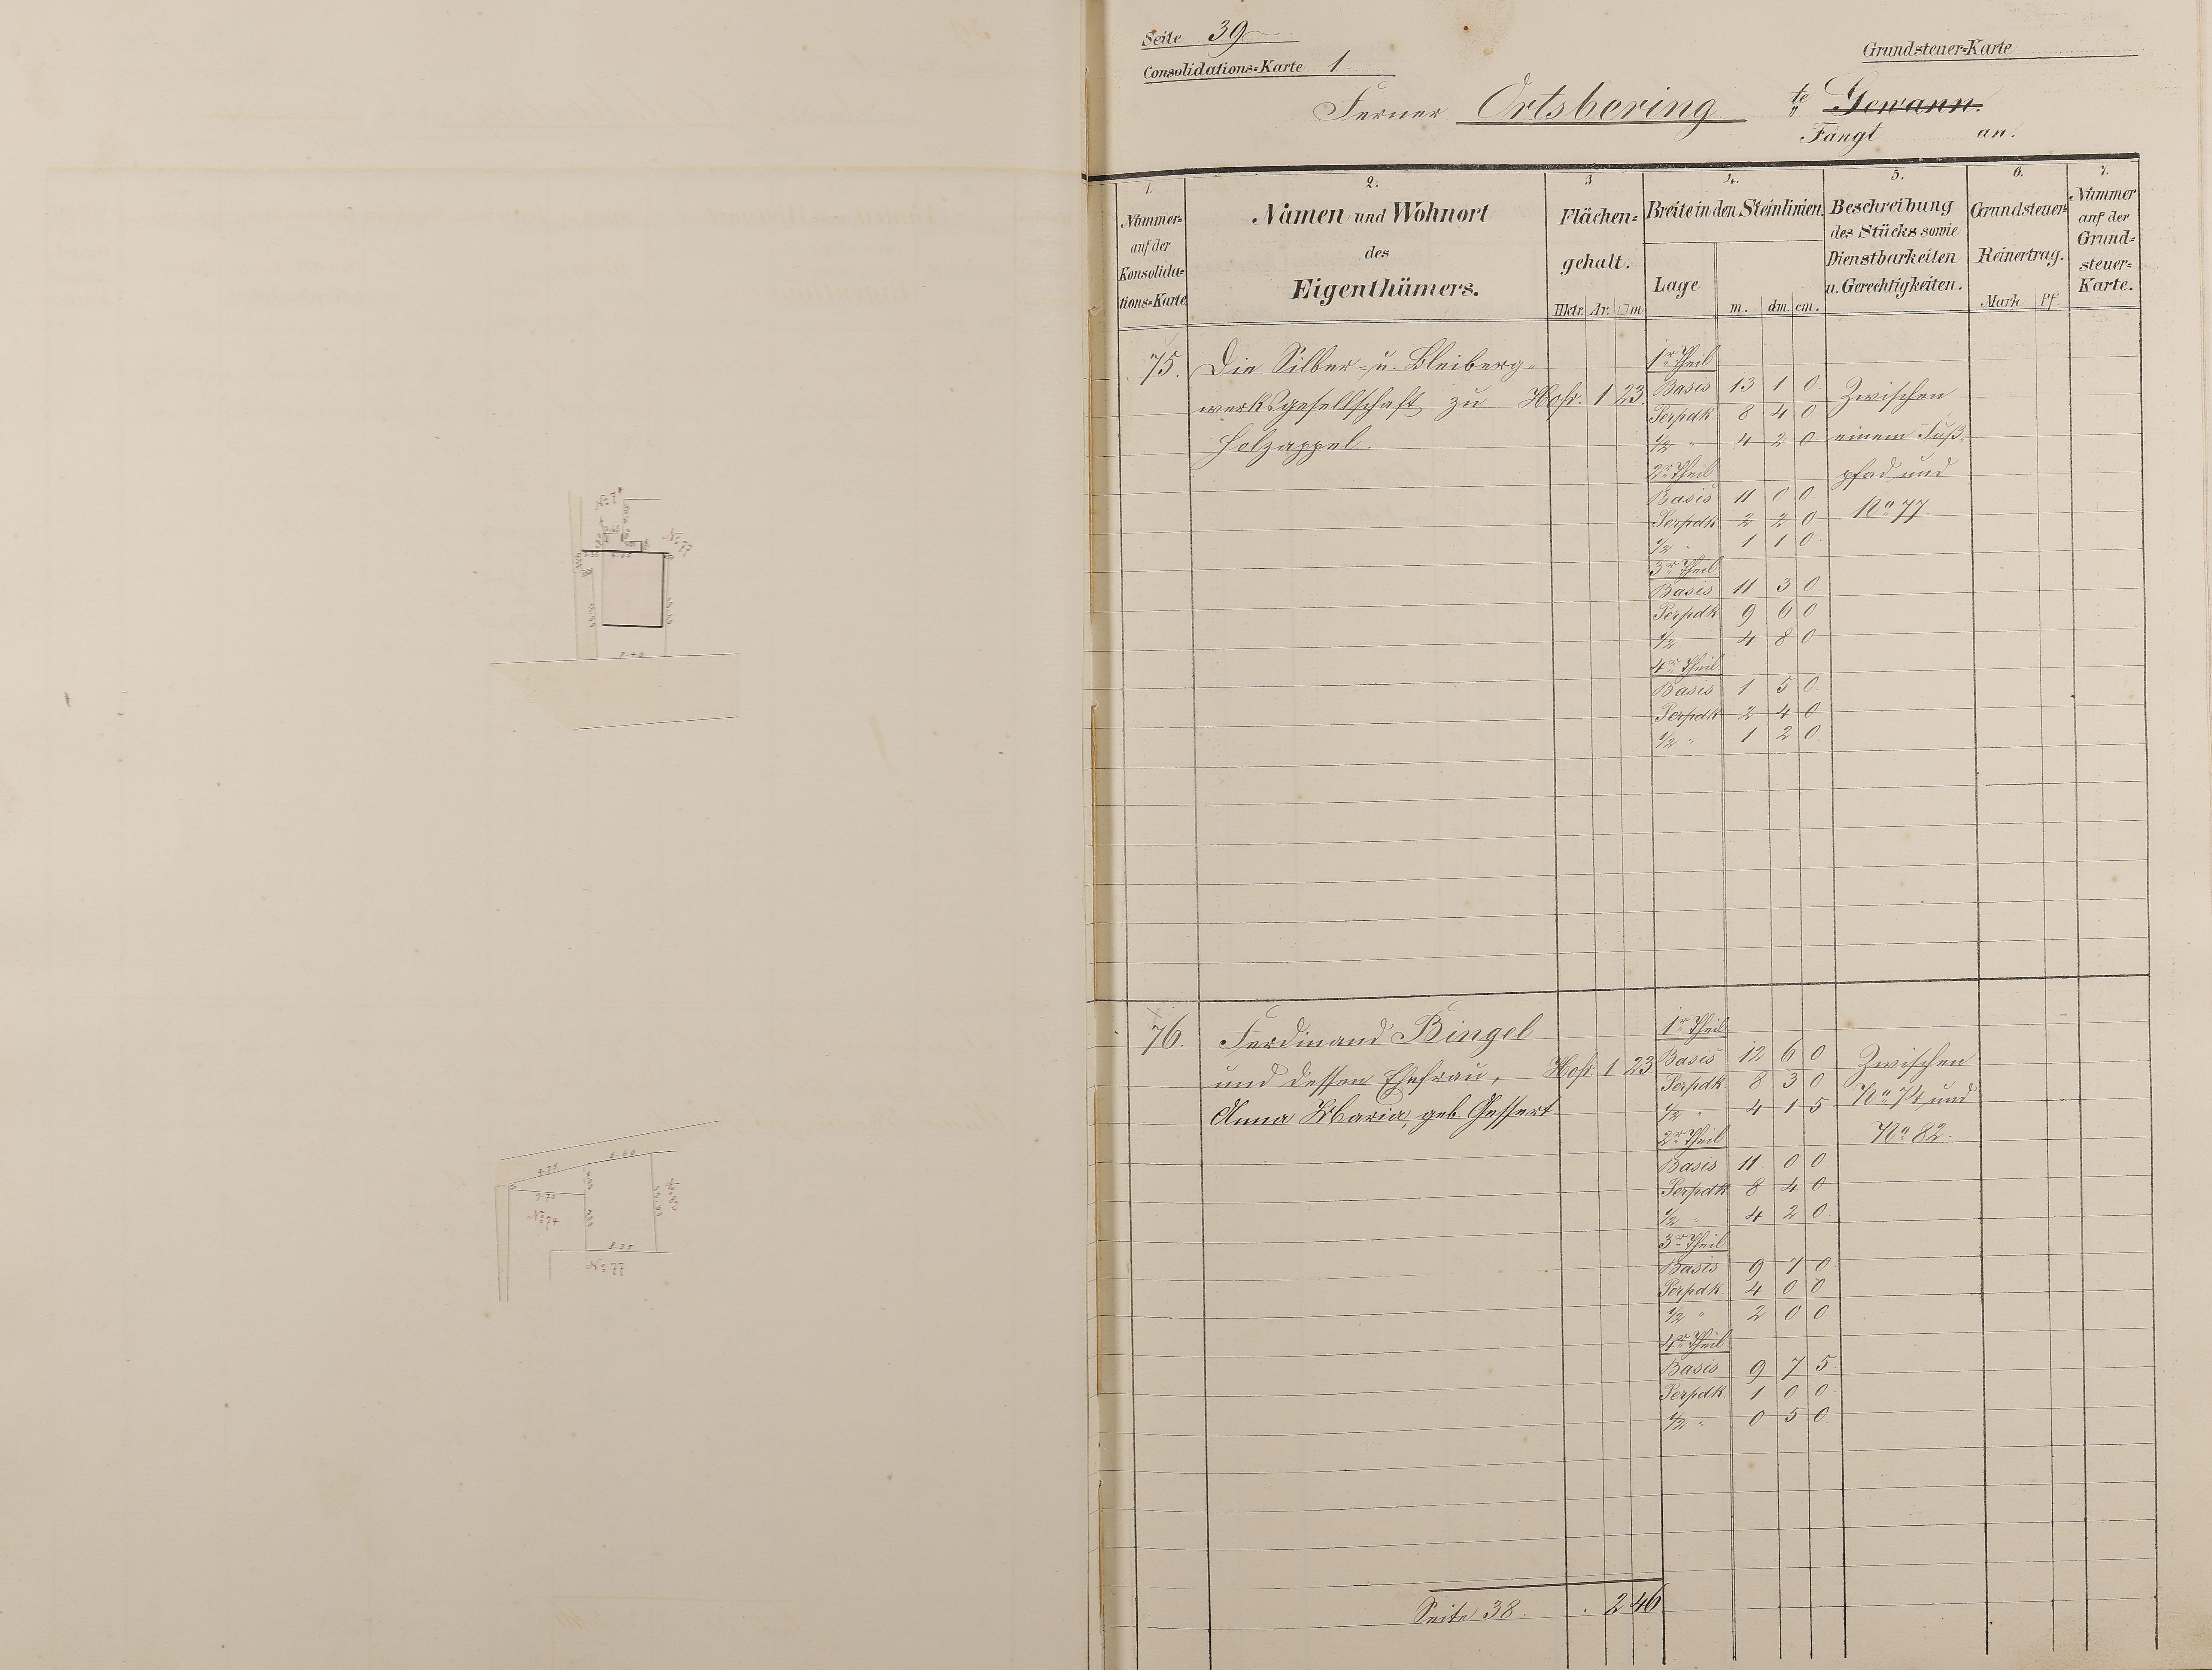 Seite 39
Consolidations=Karte 1.
Grundsteuer=Karte
Ferner Ortsbering te Gewann.
Fängt an.
1. 2. 3 4. 5. 6. 7.
Nummer=
auf der
Konsolida=
tions=Karte
Namen und Wohnort
des
Eigenthümers.
Flächen=
gehalt.
Hktr. Ar. □m
Breite in den Steinlinien.
Lage m. dm. cm.
Beschreibung
des Stücks sowie
Dienstbarkeiten
u. Gerechtigkeiten.
Grundsteuer=
Reinertrag.
Mark Pf.
Nummer
auf der
Grund=
steuer=
Karte.
75. Die Silber= u. Bleiberg=
werksgesellschaft zu Hofr. 1 23.
Holzappel.
1r Theil
Basis 13 1 0
Perpdk. 8 4 0
1/2 " 4 2 0
2r Theil
Basis 11 0 0
Perpdk 2 2 0
1/2 " 1 1 0
3r Theil
Basis 11 3 0
Perpdk 9 6 0
1/2 4 8 0
4r Theil
Basis 1 5 0.
Perpdk 2 4 0
1/2 " 1 2 0.
Zwischen
einem Fuß=
pfad und
No 77.
76. Ferdinand Bingel
und dessen Ehefrau, Hofr. 1 23
Anna Maria, geb. Gessert
1r Theil
Basis 12 6 0
Perpdk 8 3 0
1/2 " 4 1 5
2r Theil
Basis 11 0 0
Perpdk 8 4 0
1/2 " 4 2 0.
3r Theil
Basis 9 7 0
Perpdk 4 0 0
1/2 " 2 0 0
4r Theil
Basis 9 7 5
Perpdk. 1 0 0
1/2 " 0 5 0.
Zwischen
No 74 und
No 82.
Seite 38. . 2 46
No 77
8.40
9.75
8.60
9.70
No 74
8.35
No 77